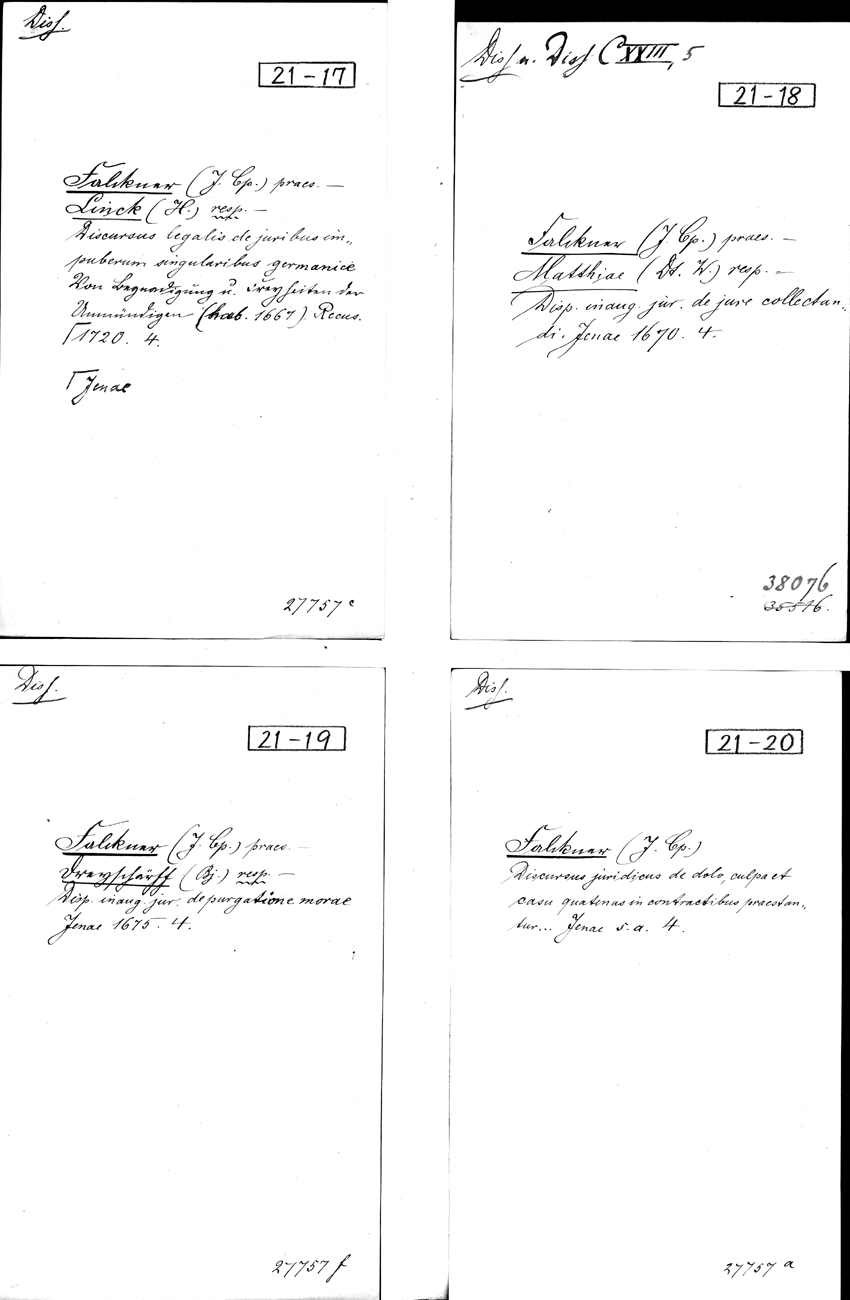 Diss.
21-17
Falckner (J. Cp.) praes. —
Linck (H.) resp. —
Discursus legalis de juribus im„
puberum singularibus germanice
Von Begnadigung u. Freyheiten der
Unmündigen (hab. 1667). Recus.
⌈1720. 4.
⌈Jenae
27757 c
Diss u. Diss C XXIII, 5
21-18
Falckner (J. Cp.) praes. —
Matthiae (Dt. W.) resp. —
Disp. inaug. jur. de jure collectan„
di. Jenae 1670. 4.
38076
35516.
Diss.
21-19
Falckner (J. Cp.) praes. —
Dreyschärff (Bj.) resp. —
Disp. inaug. jur. de purgatione morae
Jenae 1675. 4.
27757 f
Diss.
21-20
Falckner (J. Cp.)
Discursus juridicus de dolo, culpa et
casu quatenus in contractibus praestan„
tur... Jenae s. a. 4.
27757 a